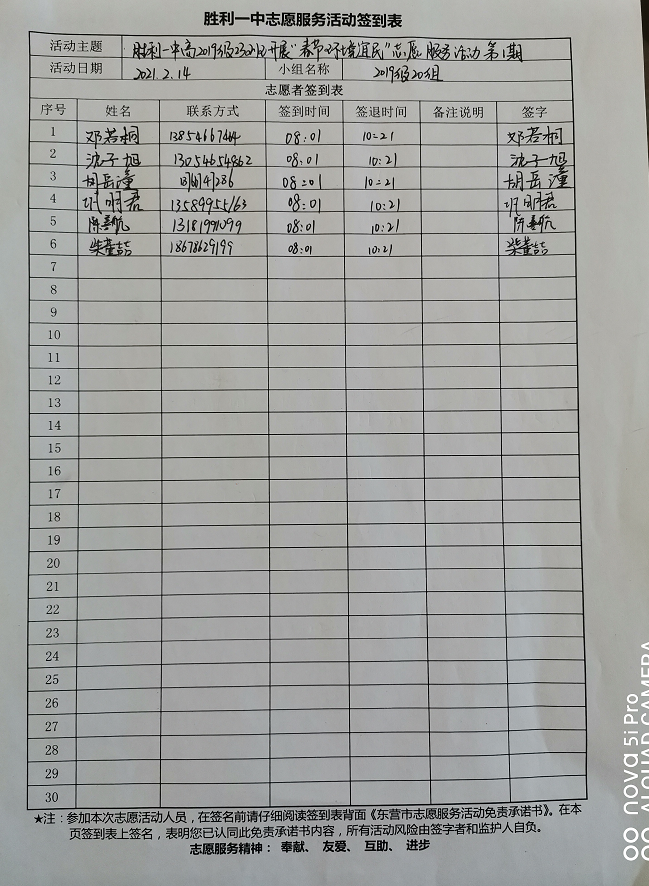 胜利一中志愿服务活动签到表
活动主题 胜利一中高2019级 开展"春节环境宜民"志愿服务活动 第1期
活动日期 2021.2.14 小组名称 2019级20组
志愿者签到表
序号 姓名 联系方式 签到时间 签退时间 备注说明 签字
1 邓若桐 08:01 10:21 邓若桐
2 沈子旭 13054654862 08:01 10:21 沈子旭
3 胡岳潼 08:01 10:21 胡岳潼
4 明君 13589955163 08:01 10:21 明君
5 陈 航 13181991099 08:01 10:21 陈 航
6 柴董喆 18678629199 08:01 10:21 柴董喆
7
8
9
10
11
12
13
14
15
16
17
18
19
20
21
22
23
24
25
26
27
28
29
30
★注：参加本次志愿活动人员，在签名前请仔细阅读签到表背面《东营市志愿服务活动免责承诺书》。在本
页签到表上签名，表明您已认同此免责承诺书内容，所有活动风险由签字者和监护人自负。
志愿服务精神： 奉献、 友爱、 互助、 进步
nova 5i Pro
AI QUAD CAMERA